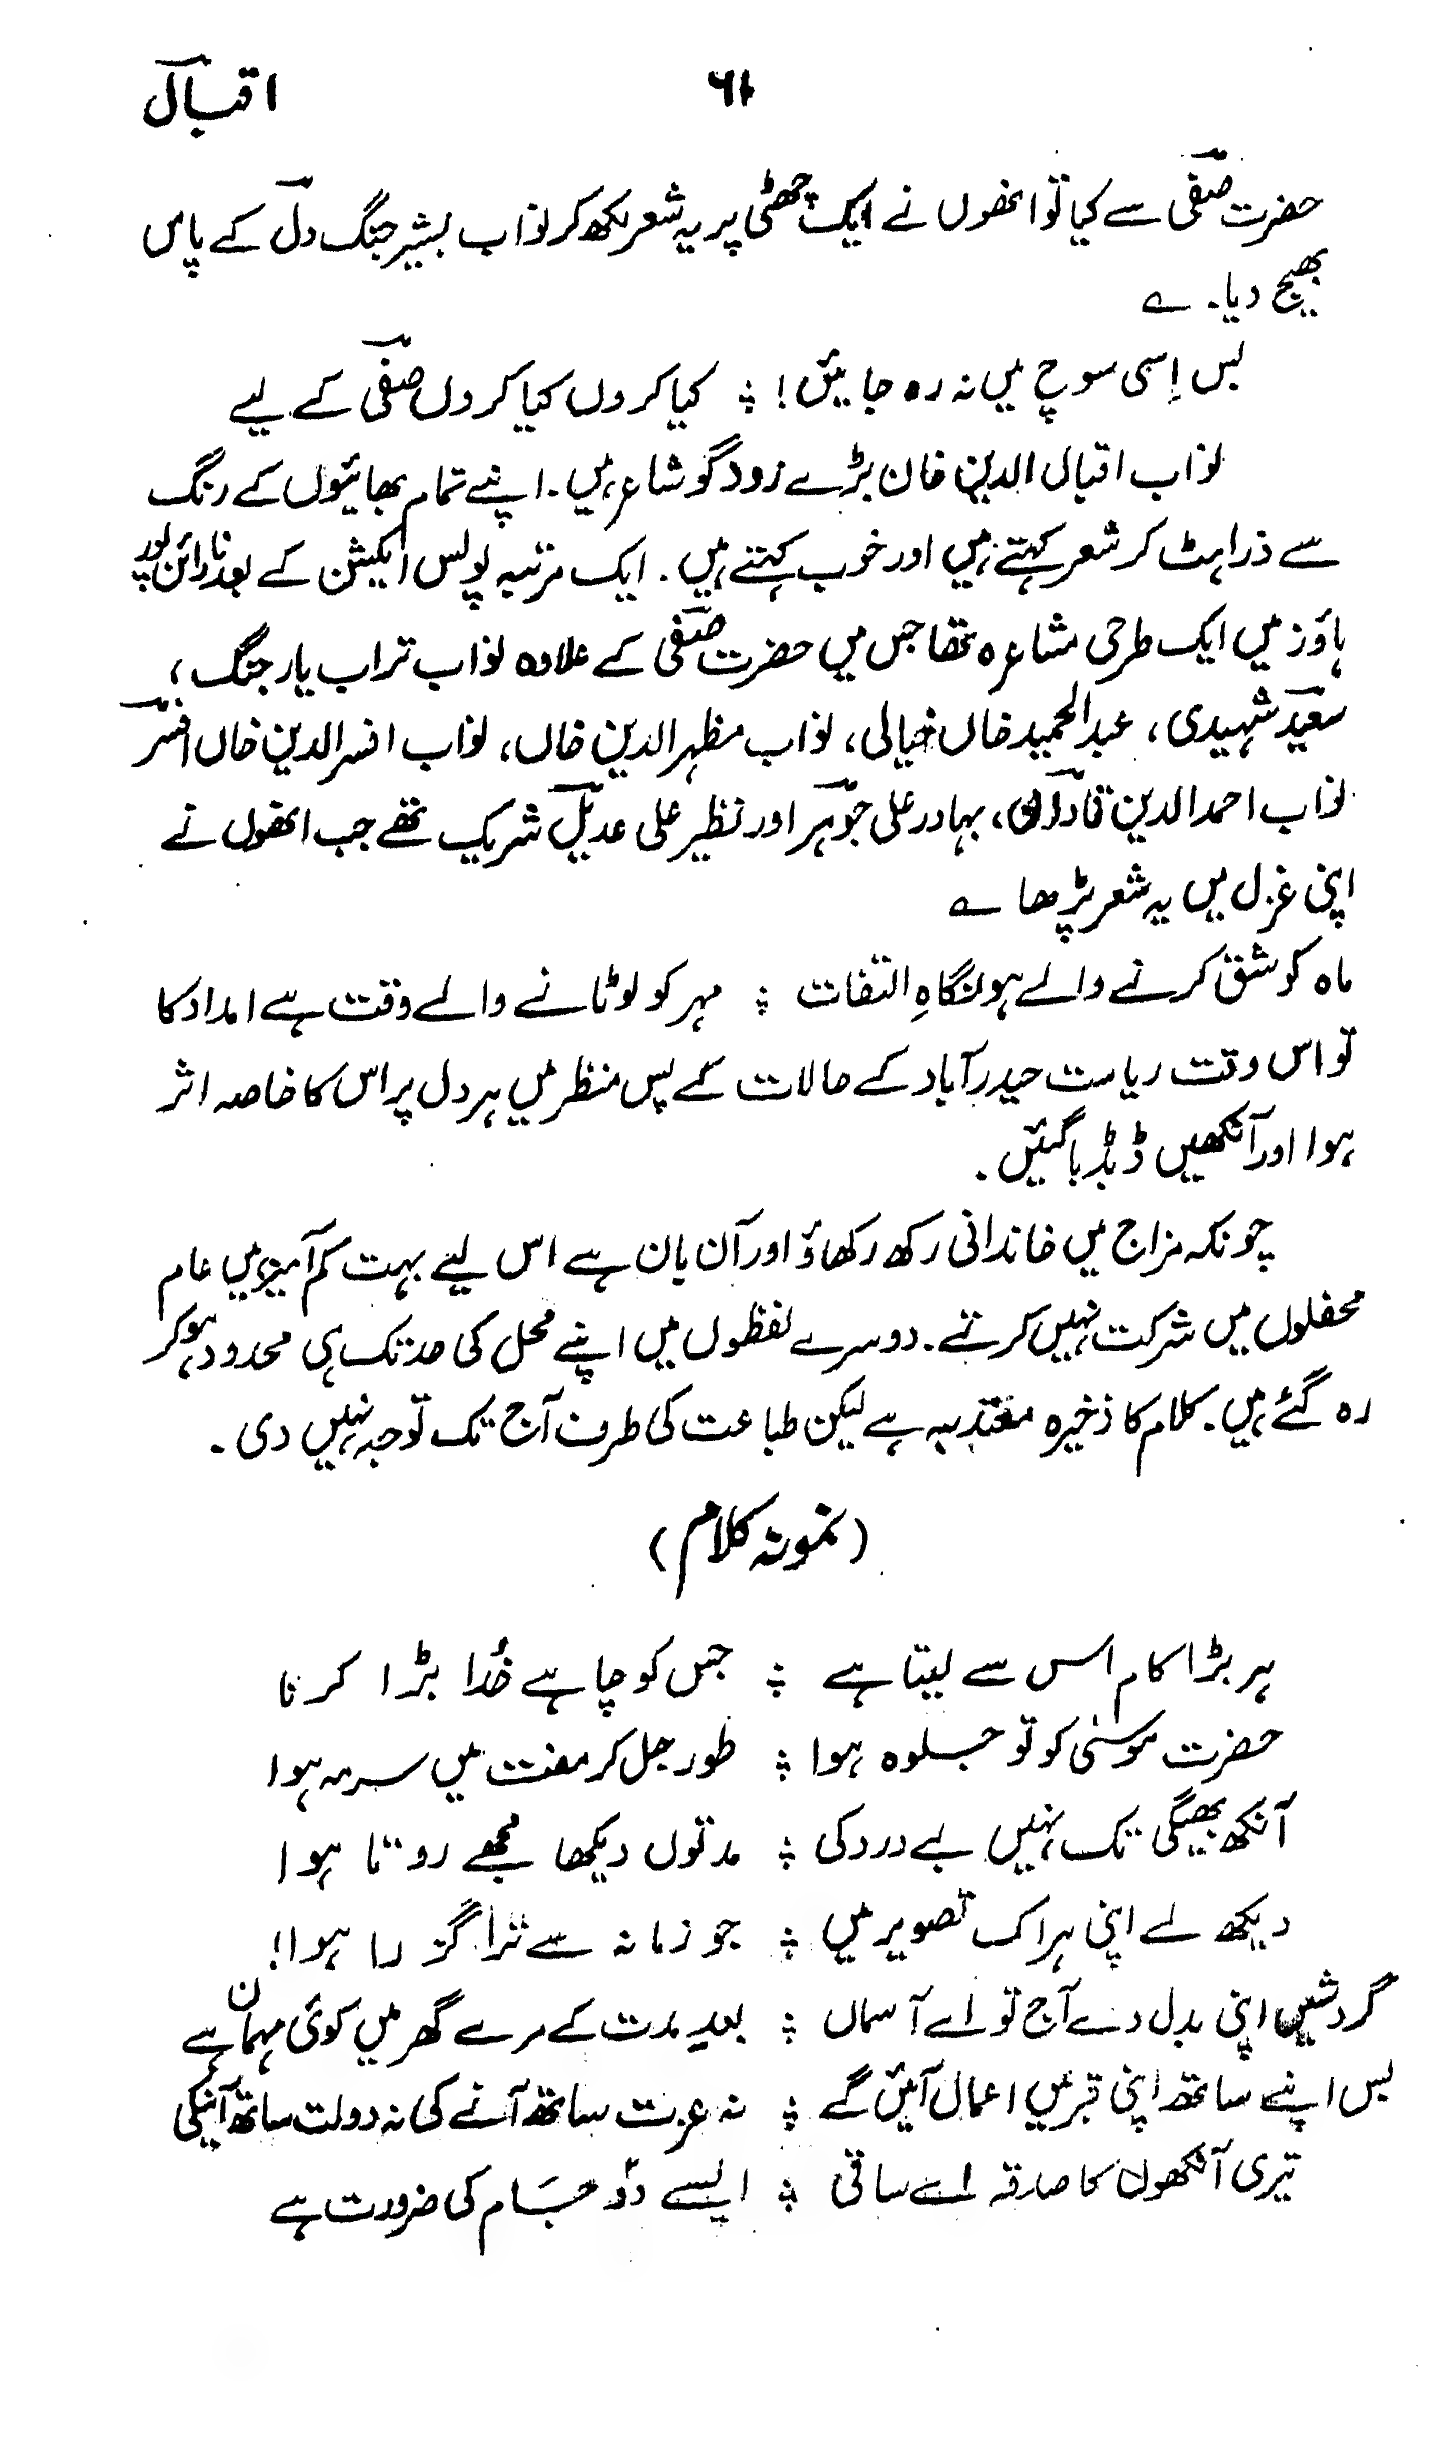 اقبالؔ
۶۱
حضرت صفیؔ سے کیا تو انھوں نے ایک چھٹی پر یہ شعر لکھ کر نواب بشیر جنگ دلؔ کے پاس
بھیج دیا۔ ؎
بس اِسی سوچ میں نہ رہ جائیں! ؛ کیا کروں کیا کروں صفیؔ کے لیے
نواب اقبال الدین خان بڑے زود گو شاعر ہیں۔ اپنے تمام بھائیوں کے رنگ
سے ذرا ہٹ کر شعر کہتے ہیں اور خوب کہتے ہیں۔ ایک مرتبہ پولس ایکشن کے بعد نارائن پور
ہاؤز میں ایک طرحی مشاعرہ تھا جس میں حضرت صفیؔ کے علاوہ نواب تراب یار جنگ،
سعیدؔ شہیدی، عبدالحمید خاں خیالی، نواب مظہر الدین خاں، نواب افسر الدین خاں افسرؔ
نواب احمد الدین قادری، بہادر علی جوہرؔ اور نظیر علی عدیلؔ شریک تھے جب انھوں نے
اپنی غزل میں یہ شعر پڑھا ؎
ماہ کو شق کرنے والے ہو نگاہِ التفات ؛ مہر کو لوٹانے والے وقت ہے امداد کا
تو اس وقت ریاست حیدرآباد کے حالات کے پس منظر میں ہر دل پر اس کا خاصہ اثر
ہوا اور آنکھیں ڈبڈبا گئیں۔
چونکہ مزاج میں خاندانی رکھ رکھاؤ اور آن بان ہے اس لیے بہت کم آمیز ہیں عام
محفلوں میں شرکت نہیں کرتے۔ دوسرے لفظوں میں اپنے محل کی حد تک ہی محدود ہو کر
رہ گئے ہیں۔ کلام کا ذخیرہ معتدبہ ہے لیکن طباعت کی طرف آج تک توجہ نہیں دی۔
(نمونہ کلام)
ہر بڑا کام اس سے لیتا ہے ؛ جس کو چاہے خُدا بڑا کرنا
حضرت موسیٰ کو تو جلوہ ہوا ؛ طور جل کر مفت میں سرمہ ہوا
آنکھ بھیگی تک نہیں بے درد کی ؛ مدتوں دیکھا مجھے روتا ہوا
دیکھ لے اپنی ہر اک تصویر میں ؛ جو زمانہ سے ترا گزرا ہوا!
گردشیں اپنی بدل دے آج تو اے آسماں ؛ بعد مدت کے مرے گھر میں کوئی مہمان ہے
بس اپنے ساتھ اپنی قبر میں اعمال آئیں گے ؛ نہ عزت ساتھ آنے کی نہ دولت ساتھ آئیگی
تیری آنکھوں کا صدقہ اے ساقی ؛ ایسے دو جام کی ضرورت ہے